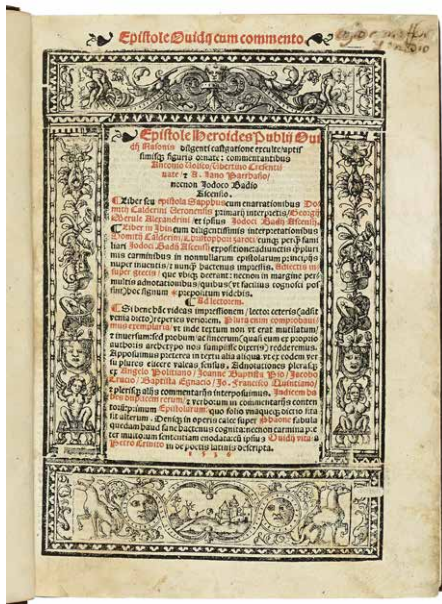 Epistole Ouidij cum commento
Epistole Heroides Publij Oui
dij Nasonis diligenti castigatione exculte/aptis
simisq; figuris ornate: commentantibus
Antonio Volsco/Ubertino Crescenti
nate/ & A. Jano Parrhasio/
necnon Jodoco Badio
Ascensio.
Liber seu epistola Sapphus cum enarrationibus Do
mitij Calderini Veronensis primarij interpretis/Georgij
Merule Alexandrini/et ipsius Jodoci Badij Ascensij.
Liber in Ibin cum diligentissimis interpretationibus
Domitij Calderini/Christophori zaroti/eiusq; perq; fami
liari Jodoci Badij Ascensij expositione: adiunctis q; pluri
mis carminibus in nonnullarum epistolarum principijs
nuper inuentis/& nunq; hactenus impressis. Adiectis in
super grecis/que vbiq; deerant: necnon in margine per
multis adnotationibus/quibus/vt facilius cognosci pos
sint/hoc signum prepositum videbis.
Ad lectorem.
Si bene hanc videas impressionem/lector/ceteris (adsit
venia dicto) reperies veriorem. Plura enim comprobaui
mus exemplaria/vt inde textum non vt erat mutilatum/
& inuersum: sed probum/ac sincerum (quasi eum ex proprio
authoris archetypo nos suripuisse dixeris) redderemus.
Apposuimus preterea in textu alia aliqua. vt ex eodem ver
su plures elicere valeas sensus. Adnotationes plerasq;
ex Angelo Politiano/Joanne Baptista Pio/Jacobo
Crucio/Baptista Egnatio/Jo. Francisco Quintiano/
& plerisq; alijs commentarijs interposuimus. Indicem ha
bes omnium rerum/& verborum in commentarijs conten
torum: primum Epistolarum: quo folio vnaqueq; dictio sita
sit asserunt. Deniq; in operis calce super Phaone fabula
quedam haud sane hactenus cognita: necnon carmina pre
ter multorum sententiam enodata: cum ipsius Ouidij vita: a
Petro Crinito in de poetis latinis descripta.
1 5 3 6